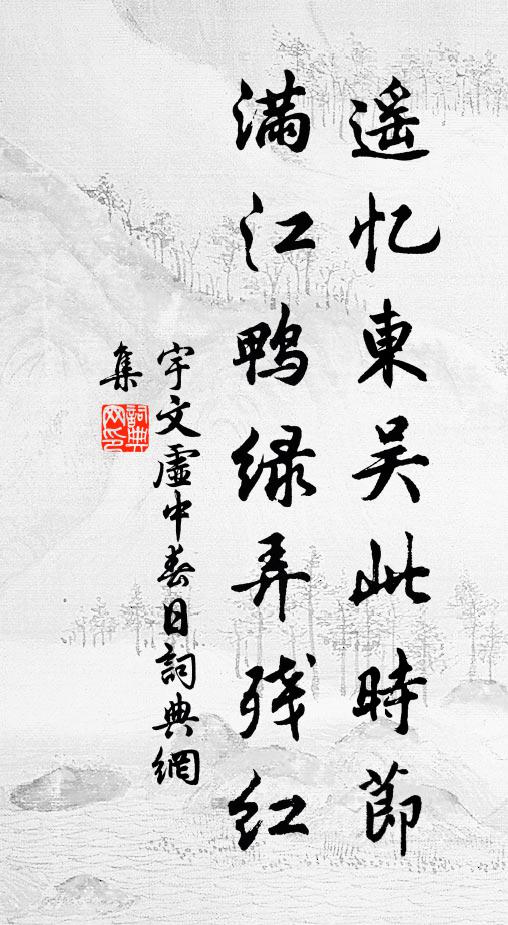 遥忆東吴此時節
满江鸭绿弄残红
宇文虚中春日詞典網
集
詞典网印